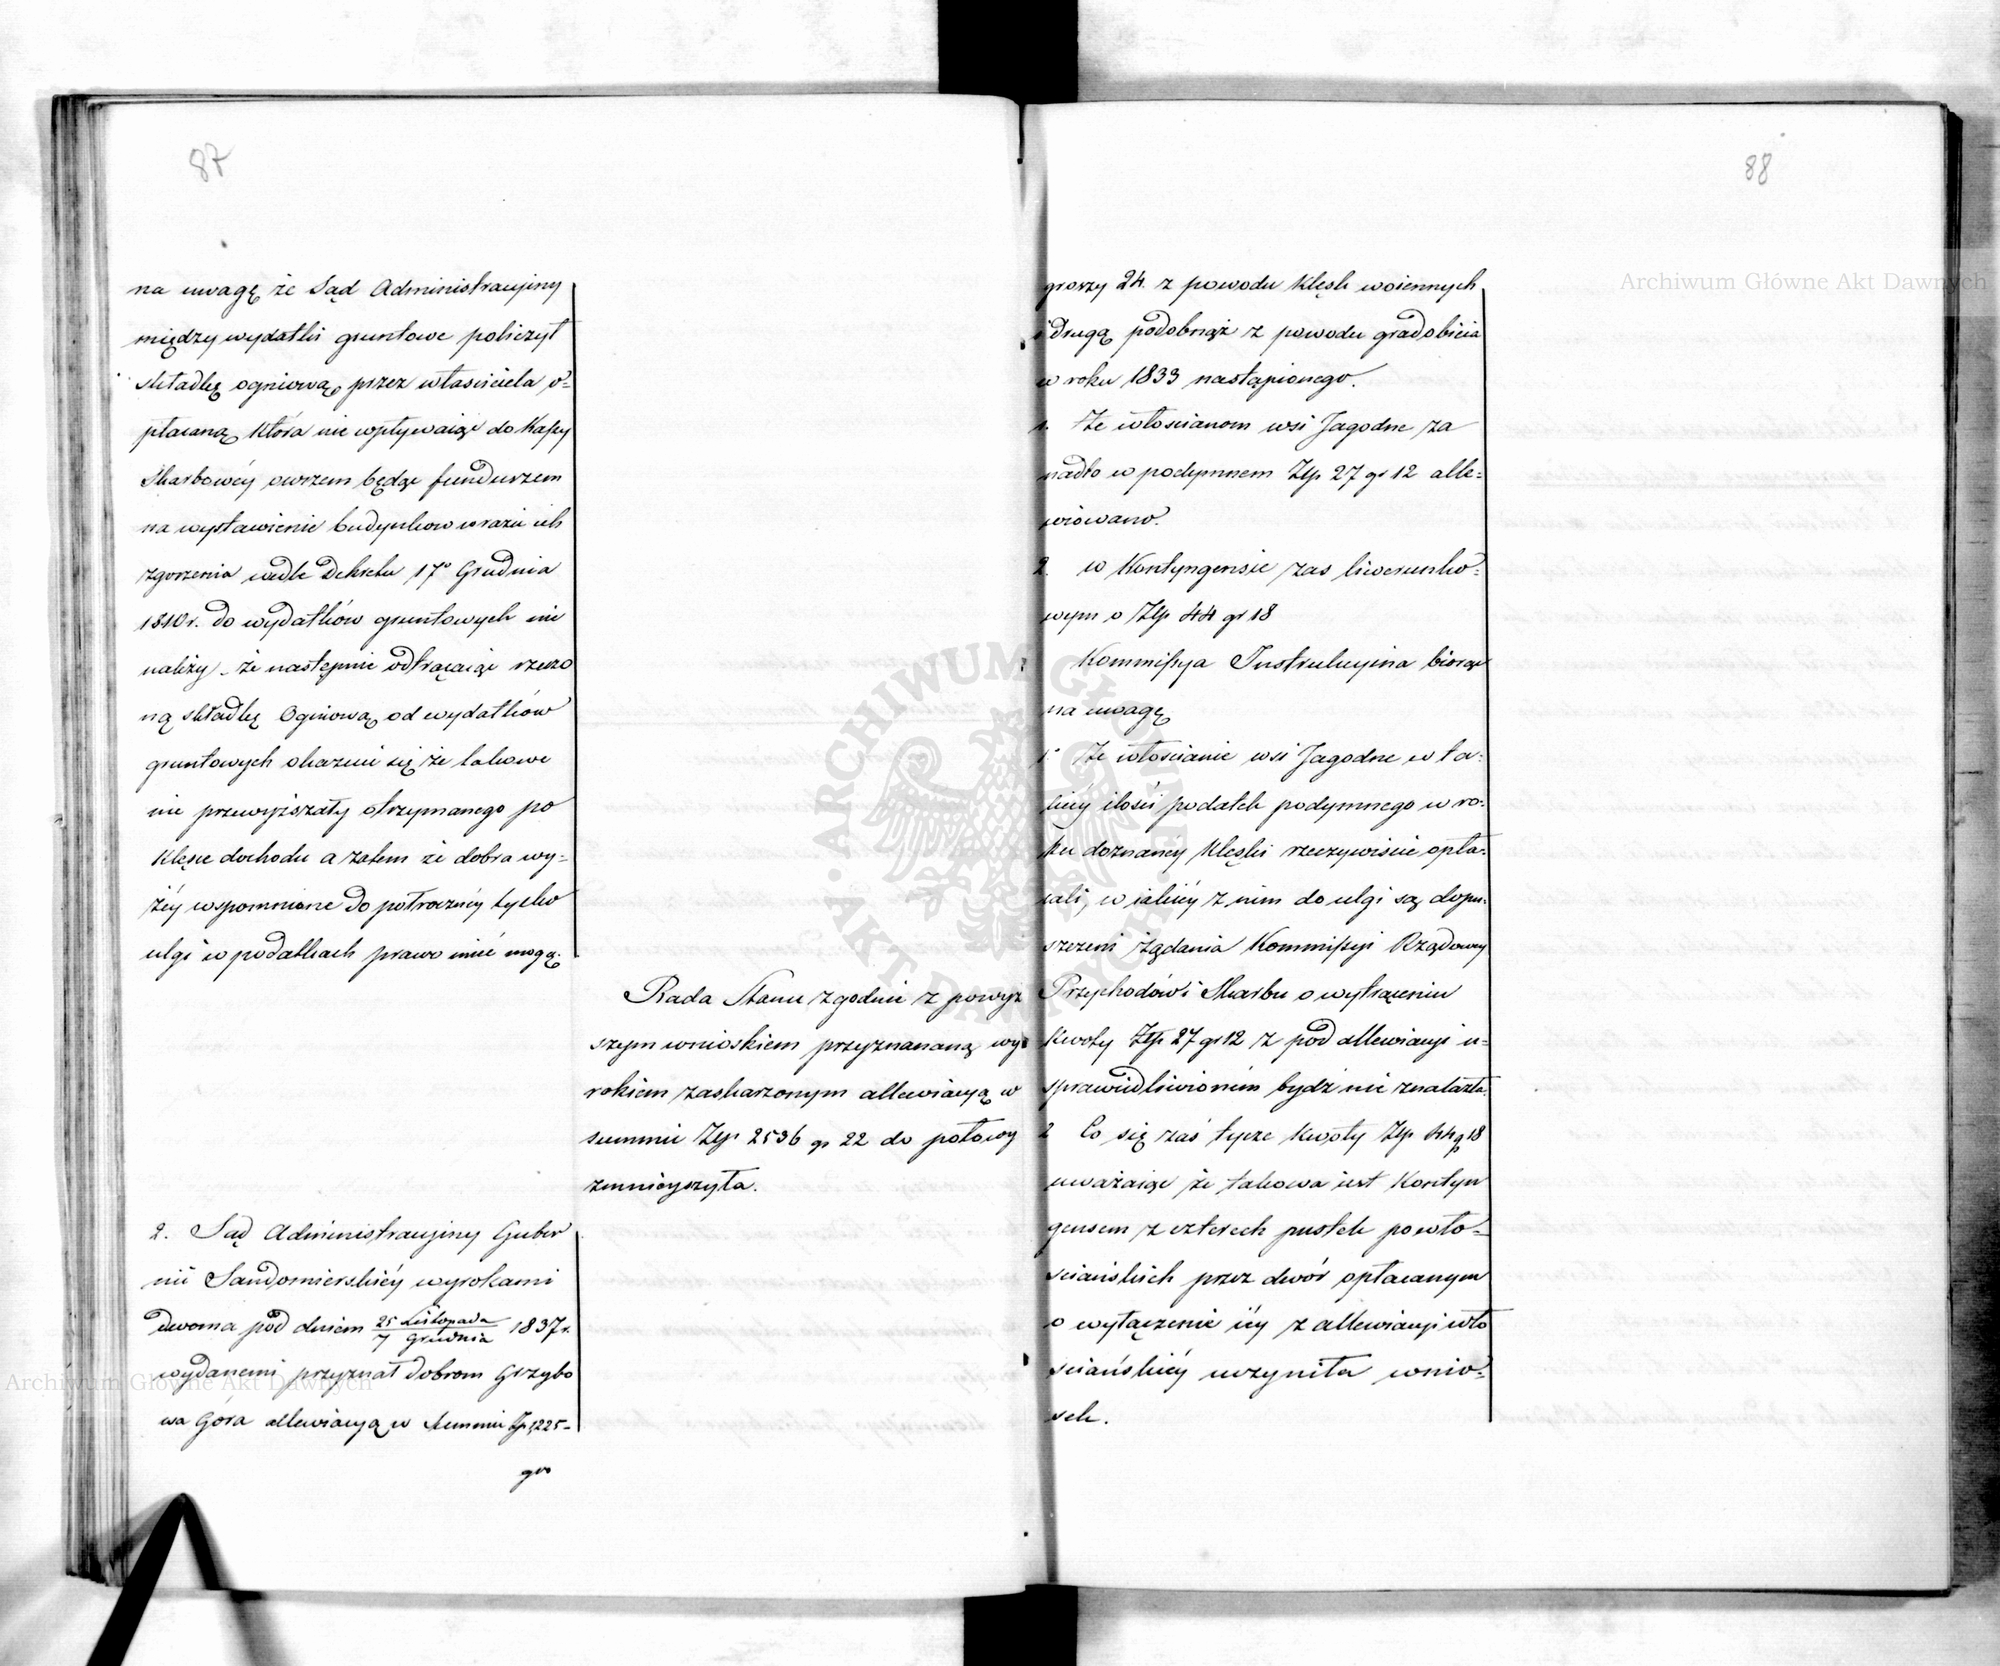 87
na uwagę że Sąd Administracyiny
między wydatki gruntowe policzył
składkę ogniową przez właściciela o=
płacaną która nie wpływaiąc do Kassy
Skarbowéy owszem będąc funduszem
na wystawienie budynkow w razie ich
zgorzenia wedle Dekretu 17º Grudnia
1810 r. do wydatków gruntowych nie
należy - że następnie odtrącaiąc rzeczo
ną składkę Ogniową od wydatków
gruntowych okazuie się że takowe
nie przewyższały otrzymanego po
klęsce dochodu a zatem że dobra wy=
żéy wspomnione do potrocznéy tylko
ulgi w podatkach prawo mieć mogą.
Rada Stanu zgodnie z powyż
szym wnioskiem przyznananą wy
rokiem zaskarzonym allewiacyą w
summie Złp 2536 gr 22 do połowy
zmnieyszyła.
2. Sąd Administracyiny Guber
nii Sandomierskiéy wyrokami
dwoma pod dniem 25 Listopada / 7 Grudnia 1837 r.
wydanemi przyznał dobrom Grzybo
wa Góra allewiacyą w Summie Zp 1225-
gro
88
groszy 24. z powodu klęsk woiennych
i drugą podobnąż z powodu gradobicia
w roku 1833 nastąpionego.
1. Że włościanom wsi Jagodne za
nadto w podymnem Złp 27 gr 12 alle=
wiowano.
2. w Kontyngensie zas liwerunko=
wym o Złp 44 gr 18
Kommissya Instrukcyina biorąc
na uwagę
1º Że włościanie wsi Jagodne w ta=
kiéy ilości podatek podymnego w ro=
ku doznanéy klęski rzeczywiście opła=
cali, w iakiéy z nim do ulgi są dopu=
szczeni żądania Kommissyi Rządowey
Przychodów i Skarbu o wytrąceniu
kwoty Złp 27 gr 12 z pod allewiacyi u=
sprawiedliwioném bydź nie znalazła.
2 Co się zaś tycze kwoty Złp 44 g 18
uważaiąc że takowa iest Kontyn
gensem z czterech pustek powło=
sciańskich przez dwór opłacanym
o wyłączenie iéy z allewiacyi wło
sciańskiéy uczyniła wnio=
sek.
Archiwum Główne Akt Dawnych
Archiwum Główne Akt Dawnych
· ARCHIWUM GŁÓWNE · AKT DAWNYCH